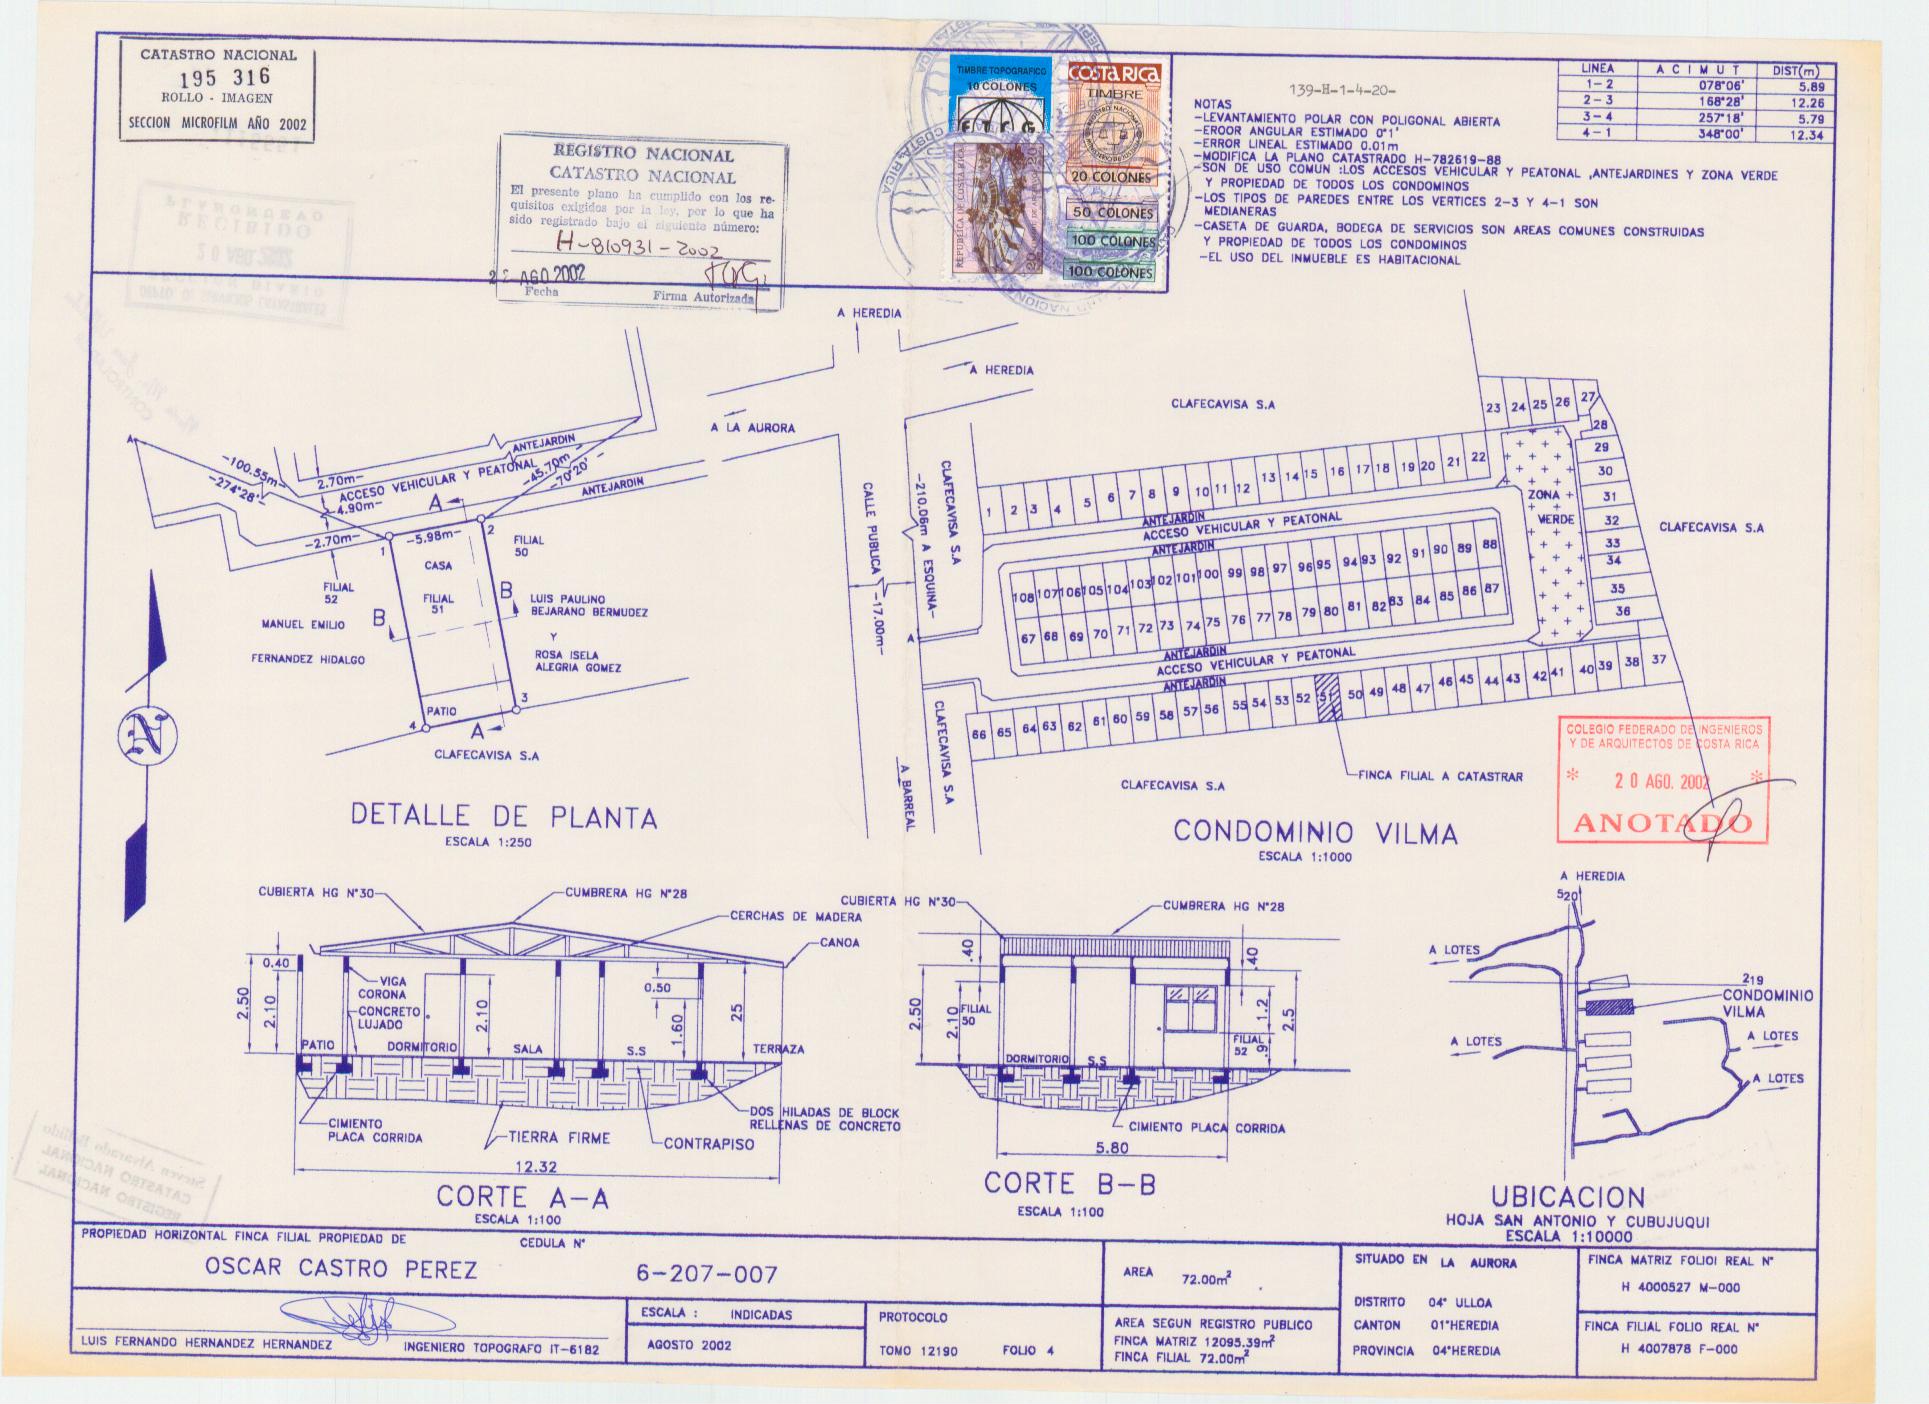 CATASTRO NACIONAL
195 316
ROLLO - IMAGEN
SECCION MICROFILM AÑO 2002
REGISTRO NACIONAL
CATASTRO NACIONAL
El presente plano ha cumplido con los re-
quisitos exigidos por la ley, por lo que ha
sido registrado bajo el siguiente número:
H-810931-2002
AGO 2002
Fecha
Firma Autorizada
TIMBRE TOPOGRAFICO
10 COLONES
COSTA RICA
TIMBRE
20 COLONES
50 COLONES
100 COLONES
100 COLONES
REPUBLICA DE COSTA RICA
139-H-1-4-20-
NOTAS
-LEVANTAMIENTO POLAR CON POLIGONAL ABIERTA
-EROOR ANGULAR ESTIMADO 0°1'
-ERROR LINEAL ESTIMADO 0.01m
-MODIFICA LA PLANO CATASTRADO H-782619-88
-SON DE USO COMUN :LOS ACCESOS VEHICULAR Y PEATONAL ,ANTEJARDINES Y ZONA VERDE
Y PROPIEDAD DE TODOS LOS CONDOMINOS
-LOS TIPOS DE PAREDES ENTRE LOS VERTICES 2-3 Y 4-1 SON
MEDIANERAS
-CASETA DE GUARDA, BODEGA DE SERVICIOS SON AREAS COMUNES CONSTRUIDAS
Y PROPIEDAD DE TODOS LOS CONDOMINOS
-EL USO DEL INMUEBLE ES HABITACIONAL
LINEA ACIMUT DIST(m)
1-2 078°06' 5.89
2-3 168°28' 12.26
3-4 257°18' 5.79
4-1 348°00' 12.34
A HEREDIA
A HEREDIA
A LA AURORA
A
-100.55m-
-274°28'-
2.70m-
ANTEJARDIN
ACCESO VEHICULAR Y PEATONAL
-4.90m-
-45.70m-
-70°20'-
ANTEJARDIN
A
-2.70m-
-5.98m-
1
2
FILIAL
50
CASA
FILIAL
51
FILIAL
52
B
B
LUIS PAULINO
BEJARANO BERMUDEZ
Y
ROSA ISELA
ALEGRIA GOMEZ
MANUEL EMILIO
FERNANDEZ HIDALGO
PATIO
3
4
A
CLAFECAVISA S.A
DETALLE DE PLANTA
ESCALA 1:250
CALLE PUBLICA
-17.00m-
-210.06m A ESQUINA-
A
A BARREAL
CLAFECAVISA S.A
CLAFECAVISA S.A
CLAFECAVISA S.A
CLAFECAVISA S.A
CLAFECAVISA S.A
23 24 25 26 27
28
29
30
31
32
33
34
35
36
1 2 3 4 5 6 7 8 9 10 11 12 13 14 15 16 17 18 19 20 21 22
ZONA
VERDE
ANTEJARDIN
ACCESO VEHICULAR Y PEATONAL
ANTEJARDIN
108 107 106 105 104 103 102 101 100 99 98 97 96 95 94 93 92 91 90 89 88
67 68 69 70 71 72 73 74 75 76 77 78 79 80 81 82 83 84 85 86 87
ANTEJARDIN
ACCESO VEHICULAR Y PEATONAL
ANTEJARDIN
66 65 64 63 62 61 60 59 58 57 56 55 54 53 52 51 50 49 48 47 46 45 44 43 42 41 40 39 38 37
FINCA FILIAL A CATASTRAR
CONDOMINIO VILMA
ESCALA 1:1000
COLEGIO FEDERADO DE INGENIEROS
Y DE ARQUITECTOS DE COSTA RICA
* 20 AGO. 2002 *
ANOTADO
CUBIERTA HG N°30
CUMBRERA HG N°28
CERCHAS DE MADERA
CANOA
0.40
2.50
2.10
VIGA
CORONA
CONCRETO
LUJADO
2.10
0.50
1.60
25
PATIO
DORMITORIO
SALA
S.S
TERRAZA
CIMIENTO
PLACA CORRIDA
TIERRA FIRME
CONTRAPISO
DOS HILADAS DE BLOCK
RELLENAS DE CONCRETO
12.32
CORTE A-A
ESCALA 1:100
CUBIERTA HG N°30
CUMBRERA HG N°28
.40
.40
2.50
2.10
FILIAL
50
1.2
2.5
FILIAL
52
.9
DORMITORIO
S.S
CIMIENTO PLACA CORRIDA
5.80
CORTE B-B
ESCALA 1:100
A HEREDIA
520
A LOTES
219
CONDOMINIO
VILMA
A LOTES
A LOTES
A LOTES
UBICACION
HOJA SAN ANTONIO Y CUBUJUQUI
ESCALA 1:10000
PROPIEDAD HORIZONTAL FINCA FILIAL PROPIEDAD DE
CEDULA N°
OSCAR CASTRO PEREZ
6-207-007
AREA 72.00m²
SITUADO EN LA AURORA
DISTRITO 04° ULLOA
CANTON 01°HEREDIA
PROVINCIA 04°HEREDIA
FINCA MATRIZ FOLIOI REAL N°
H 4000527 M-000
FINCA FILIAL FOLIO REAL N°
H 4007878 F-000
LUIS FERNANDO HERNANDEZ HERNANDEZ
INGENIERO TOPOGRAFO IT-6182
ESCALA : INDICADAS
AGOSTO 2002
PROTOCOLO
TOMO 12190 FOLIO 4
AREA SEGUN REGISTRO PUBLICO
FINCA MATRIZ 12095.39m²
FINCA FILIAL 72.00m²